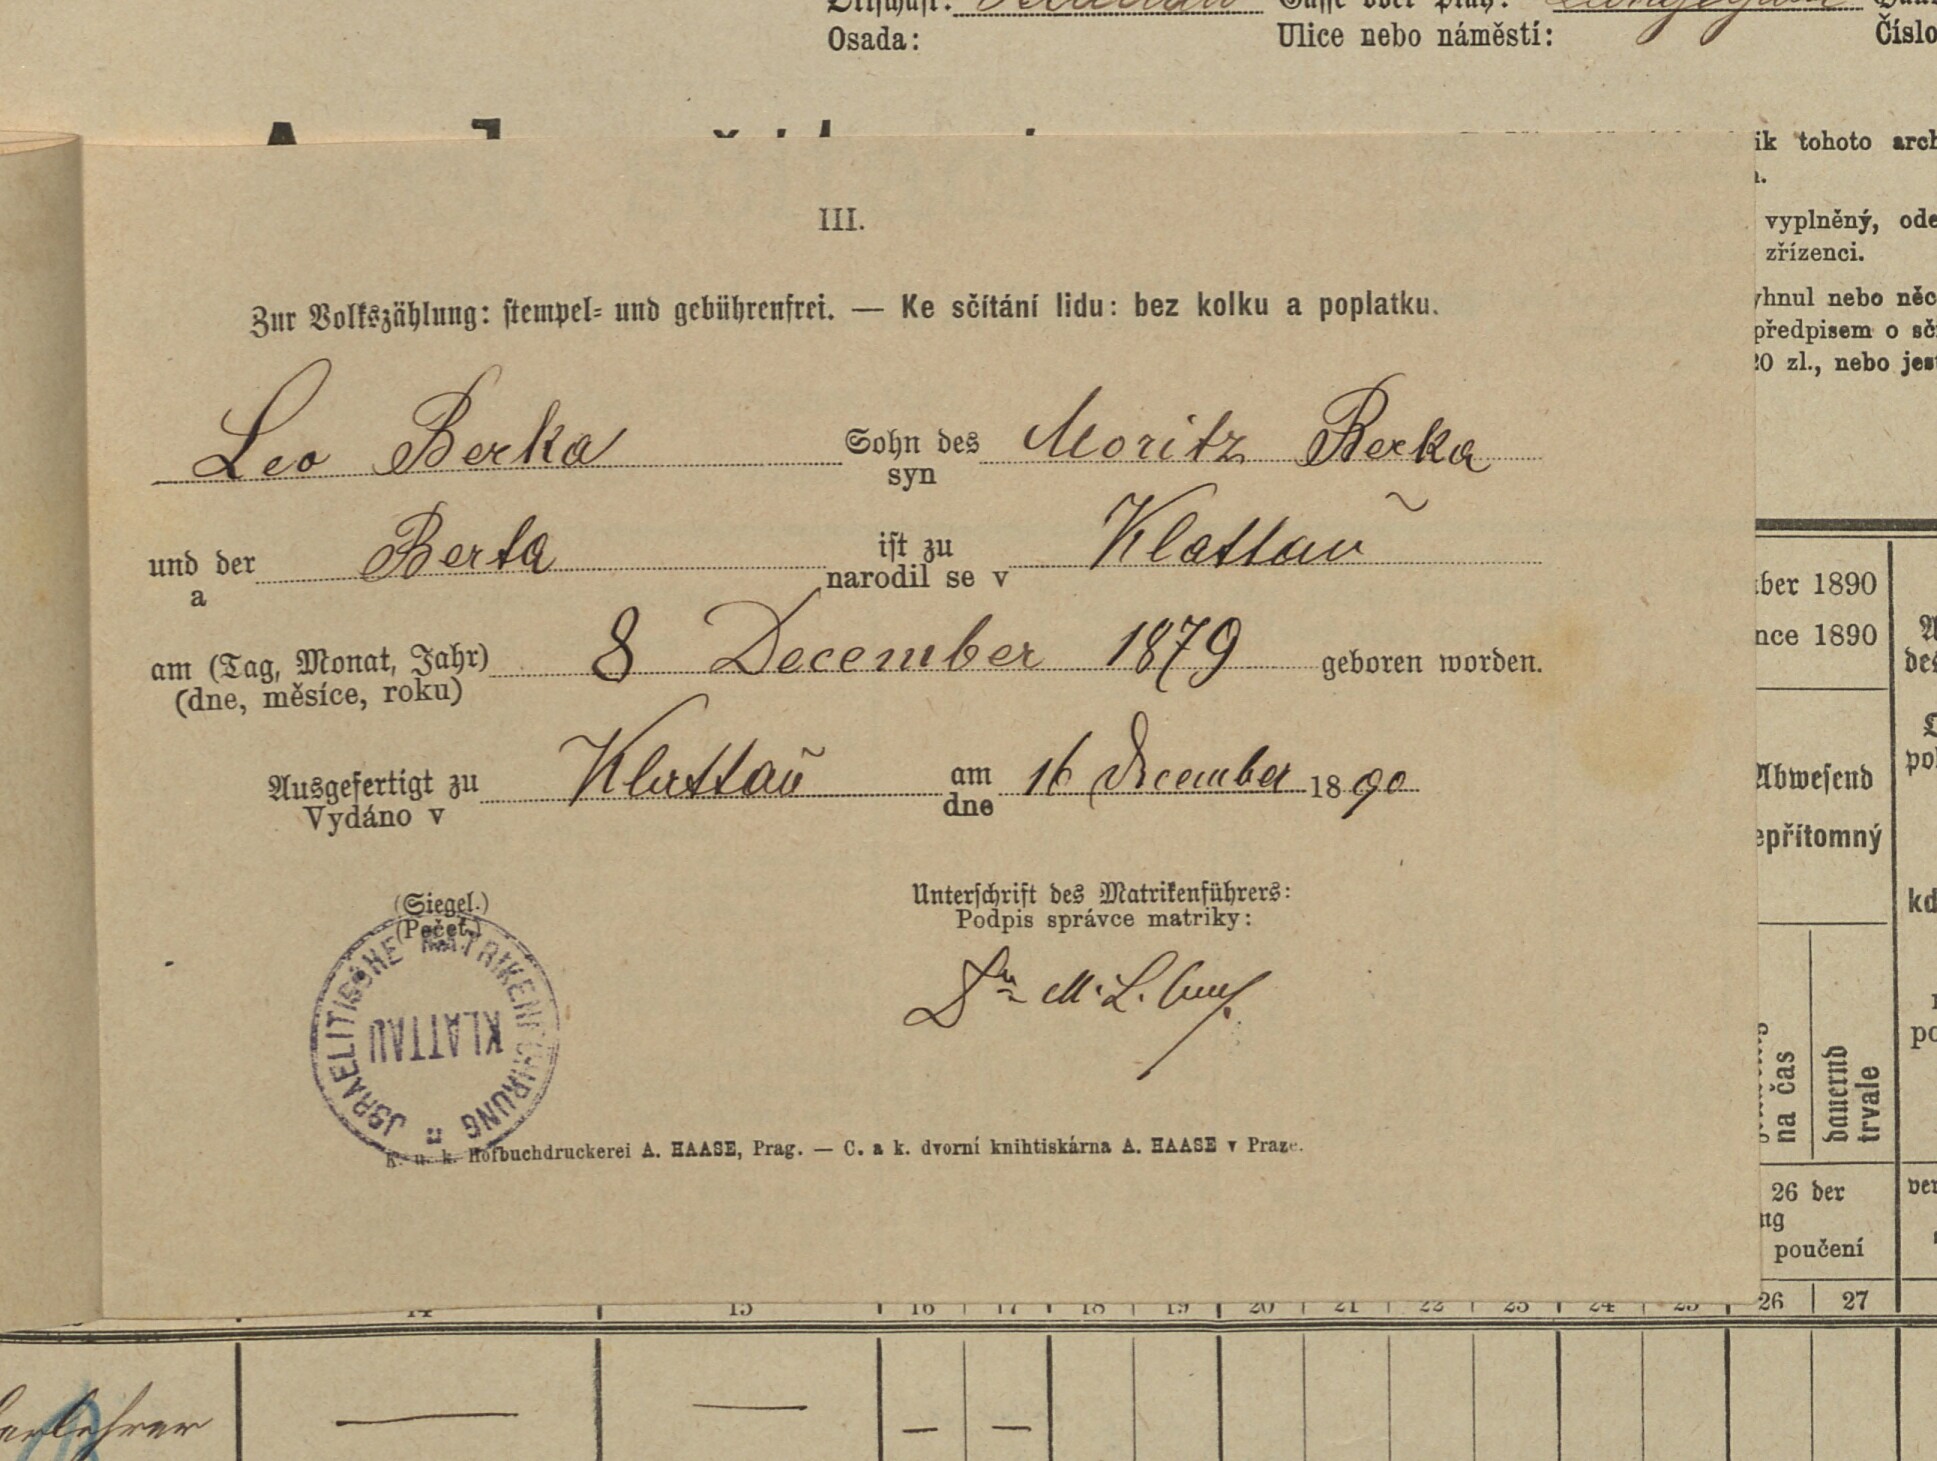 Osada:
Ulice nebo náměstí:
Číslo
ik tohoto arch
vyplněný, ode
zřízenci.
yhnul nebo něc
předpisem o sči
20 zl., nebo jest
III.
Zur Volkszählung: stempel- und gebührenfrei. — Ke sčítání lidu: bez kolku a poplatku.
Leo Berka Sohn des Moritz Berka
syn
und der Berta ist zu Klattau
a narodil se v
am (Tag, Monat, Jahr) 8 December 1879 geboren worden.
(dne, měsíce, roku)
Ausgefertigt zu Klattau am 16 December 1890
Vydáno v dne
(Siegel.)
(Pečeť.)
JSRAELITISCHE MATRIKENFÜHRUNG
KLATTAU
Unterschrift des Matrikenführers:
Podpis správce matriky:
Dr M. L.
K. u. k. Hofbuchdruckerei A. HAASE, Prag. — C. a k. dvorní knihtiskárna A. HAASE v Praze.
ber 1890
nce 1890
Abwesend
epřítomný
kd
na čas
dauernd
trvale
26 der
ng
poučení
14 15 16 17 18 19 20 21 22 23 24 25 26 27